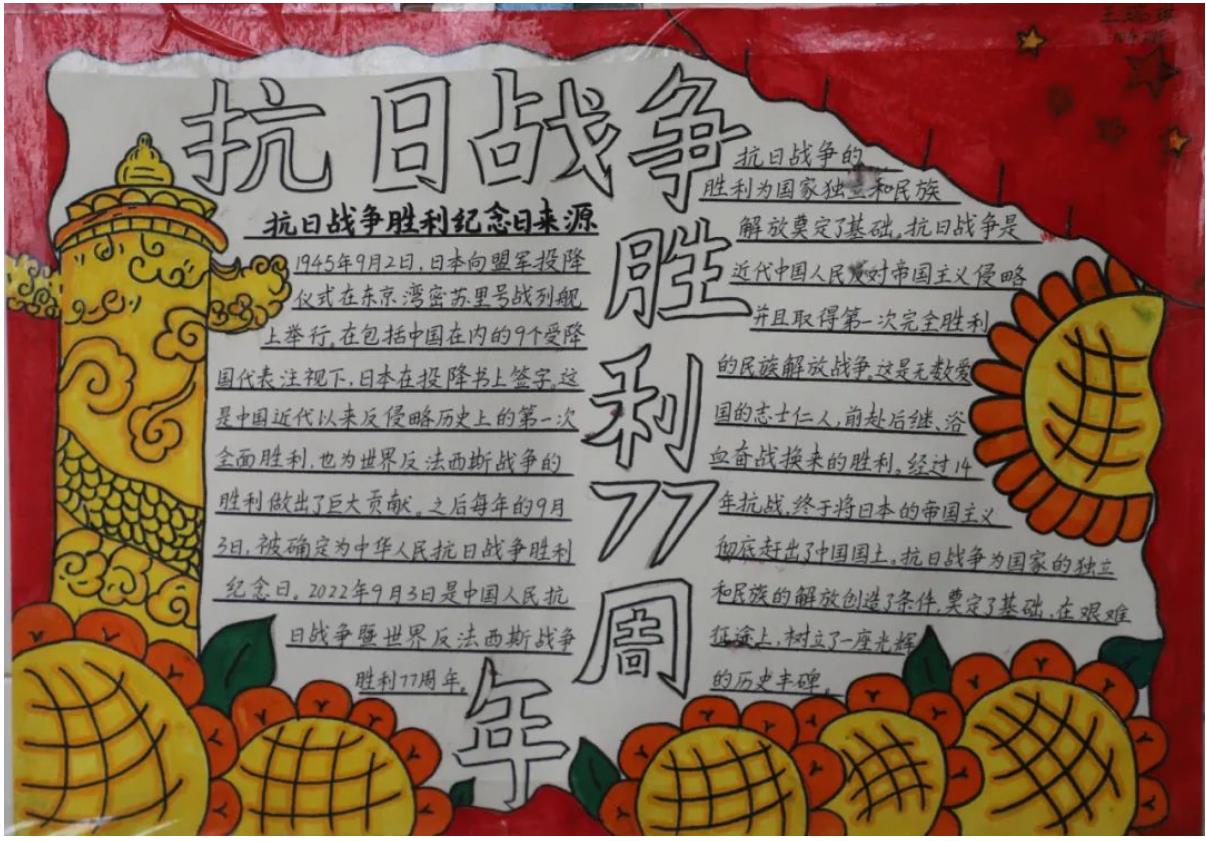 抗日战争
胜
利
77
周
年
抗日战争胜利纪念日来源
1945年9月2日,日本向盟军投降
仪式在东京湾密苏里号战列舰
上举行。在包括中国在内的9个受降
国代表注视下,日本在投降书上签字。这
是中国近代以来反侵略历史上的第一次
全面胜利,也为世界反法西斯战争的
胜利做出了巨大贡献。之后每年的9月
3日,被确定为中华人民抗日战争胜利
纪念日。2022年9月3日是中国人民抗
日战争暨世界反法西斯战争
胜利77周年。
抗日战争的
胜利为国家独立和民族
解放奠定了基础。抗日战争是
近代中国人民反对帝国主义侵略
并且取得第一次完全胜利
的民族解放战争。这是无数爱
国的志士仁人,前赴后继、浴
血奋战换来的胜利。经过14
年抗战,终于将日本的帝国主义
彻底赶出了中国国土。抗日战争为国家的独立
和民族的解放创造了条件,奠定了基础,在艰难
征途上,树立了一座光辉
的历史丰碑。